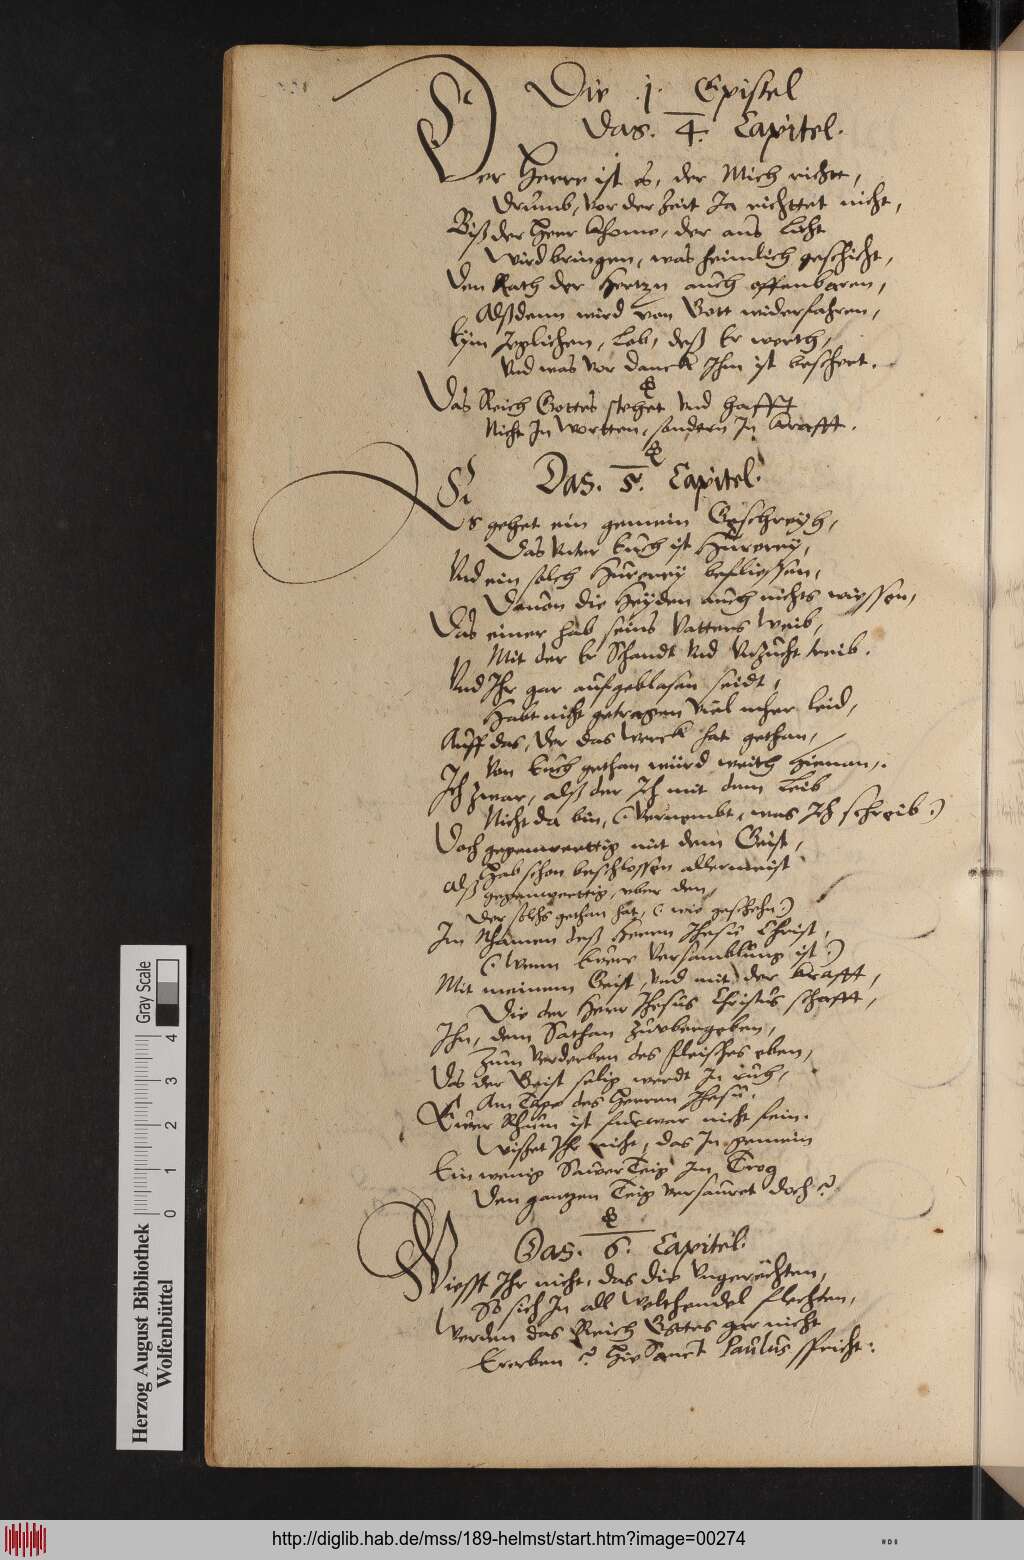 Die .1. Epistel
Das. 4. Capitel.
Der Herre ist es, der Mich richtt,
Drumb, Vor der Zeit Ja richttet nicht,
Biß der Herr Khome, der ans Licht
Wird bringen, was heimlich geschicht,
Den Rath der Hertzn auch offenbaren,
Alßdenn wird von Gott widerfahren,
Eÿm Jeglichen, Lob, deß Er werth,
Vnd was Vor danck Ihm ist beschert.
Das Reich Gottes stehet Vnd hafft
Nicht In Wortten, sondern In Krafft.
Das. 5. Capitel.
Es gehet ein gemein Geschreÿh,
Das Vnter Euch ist Hurereÿ,
Vnd ein solch Hurereÿ beflissen,
Dauon die Heÿden auch nichts wissen,
Das einer hab seins Vatters Weib,
Mit der Er Schandt Vnd Vnzucht treib.
Vnd Ihr gar aufgeblasen seidt,
Habt nicht getragen Viel mher Leid,
Auff das, Der das Werck hat gethan,
Von Euch gethan würd weith hienan.
Ich zwar, alß der Ich mit dem Leib
Nicht da bin, (: Vernembt, was Ich schreib :)
Doch gegenwerttig mit dem Geist,
Hab schon beschlossen allermeist
Alß gegenwerttig, vber den,
Der solchs gethan hat, (: wie geschehn :)
Im Nhamen deß Herrn Ihesu Christ,
(: Wenn Ewre Versamblung ist :)
Mit meinem Geist, Vnd mit der Krafft,
Die der Herr Ihesus Christus schafft,
Ihn, dem Sathan zuvbergeben,
Zum Verderben des fleisches eben,
Das der Geist selig werdt In ruh,
Am Tage des Herren Ihesu.
Ewer Rhum ist furwar nicht fein.
Wisset Ihr nicht, das In gemein
Ein wenig Sawer Teig Im Trog
Den gantzen Teig versauret doch?
Das. 6. Capitel.
Wiesst Ihr nicht, das die Vngerechten,
So sich In all Welthendel flechten,
Werden das Reich Gottes gar nicht
Ererben? Hie Sanct Paulus spricht:
Herzog August Bibliothek
Wolfenbüttel
0 1 2 3 4
Gray Scale
http://diglib.hab.de/mss/189-helmst/start.htm?image=00274